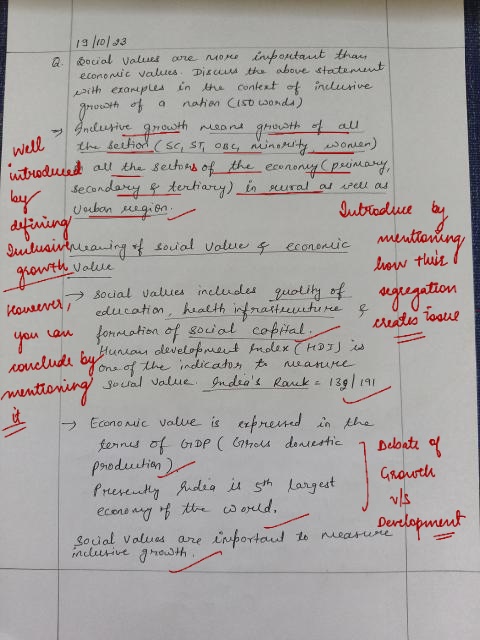 19/10/23
Q. Social values are more important than
economic values. Discuss the above statement
with examples in the context of inclusive
growth of a nation (150 words)
→ Inclusive growth means growth of all
the section (SC, ST, OBC, minority, women)
all the sectors of the economy (primary,
secondary & tertiary) in rural as well as
urban region.
Well
introduced
by
defining
Inclusive
growth
However,
you can
conclude by
mentioning
it
Introduce by
mentioning
how this
segregation
creates issue
Meaning of social value & economic
value
→ social values includes quality of
education, health infrastructure &
formation of social capital.
Human development Index (HDI) is
one of the indicator to measure
social value. India's Rank = 132/191
→ Economic value is expressed in the
terms of GDP (Gross domestic
production)
Presently India is 5th largest
economy of the world.
Debate of
Growth
v/s
Development
Social values are important to measure
inclusive growth.